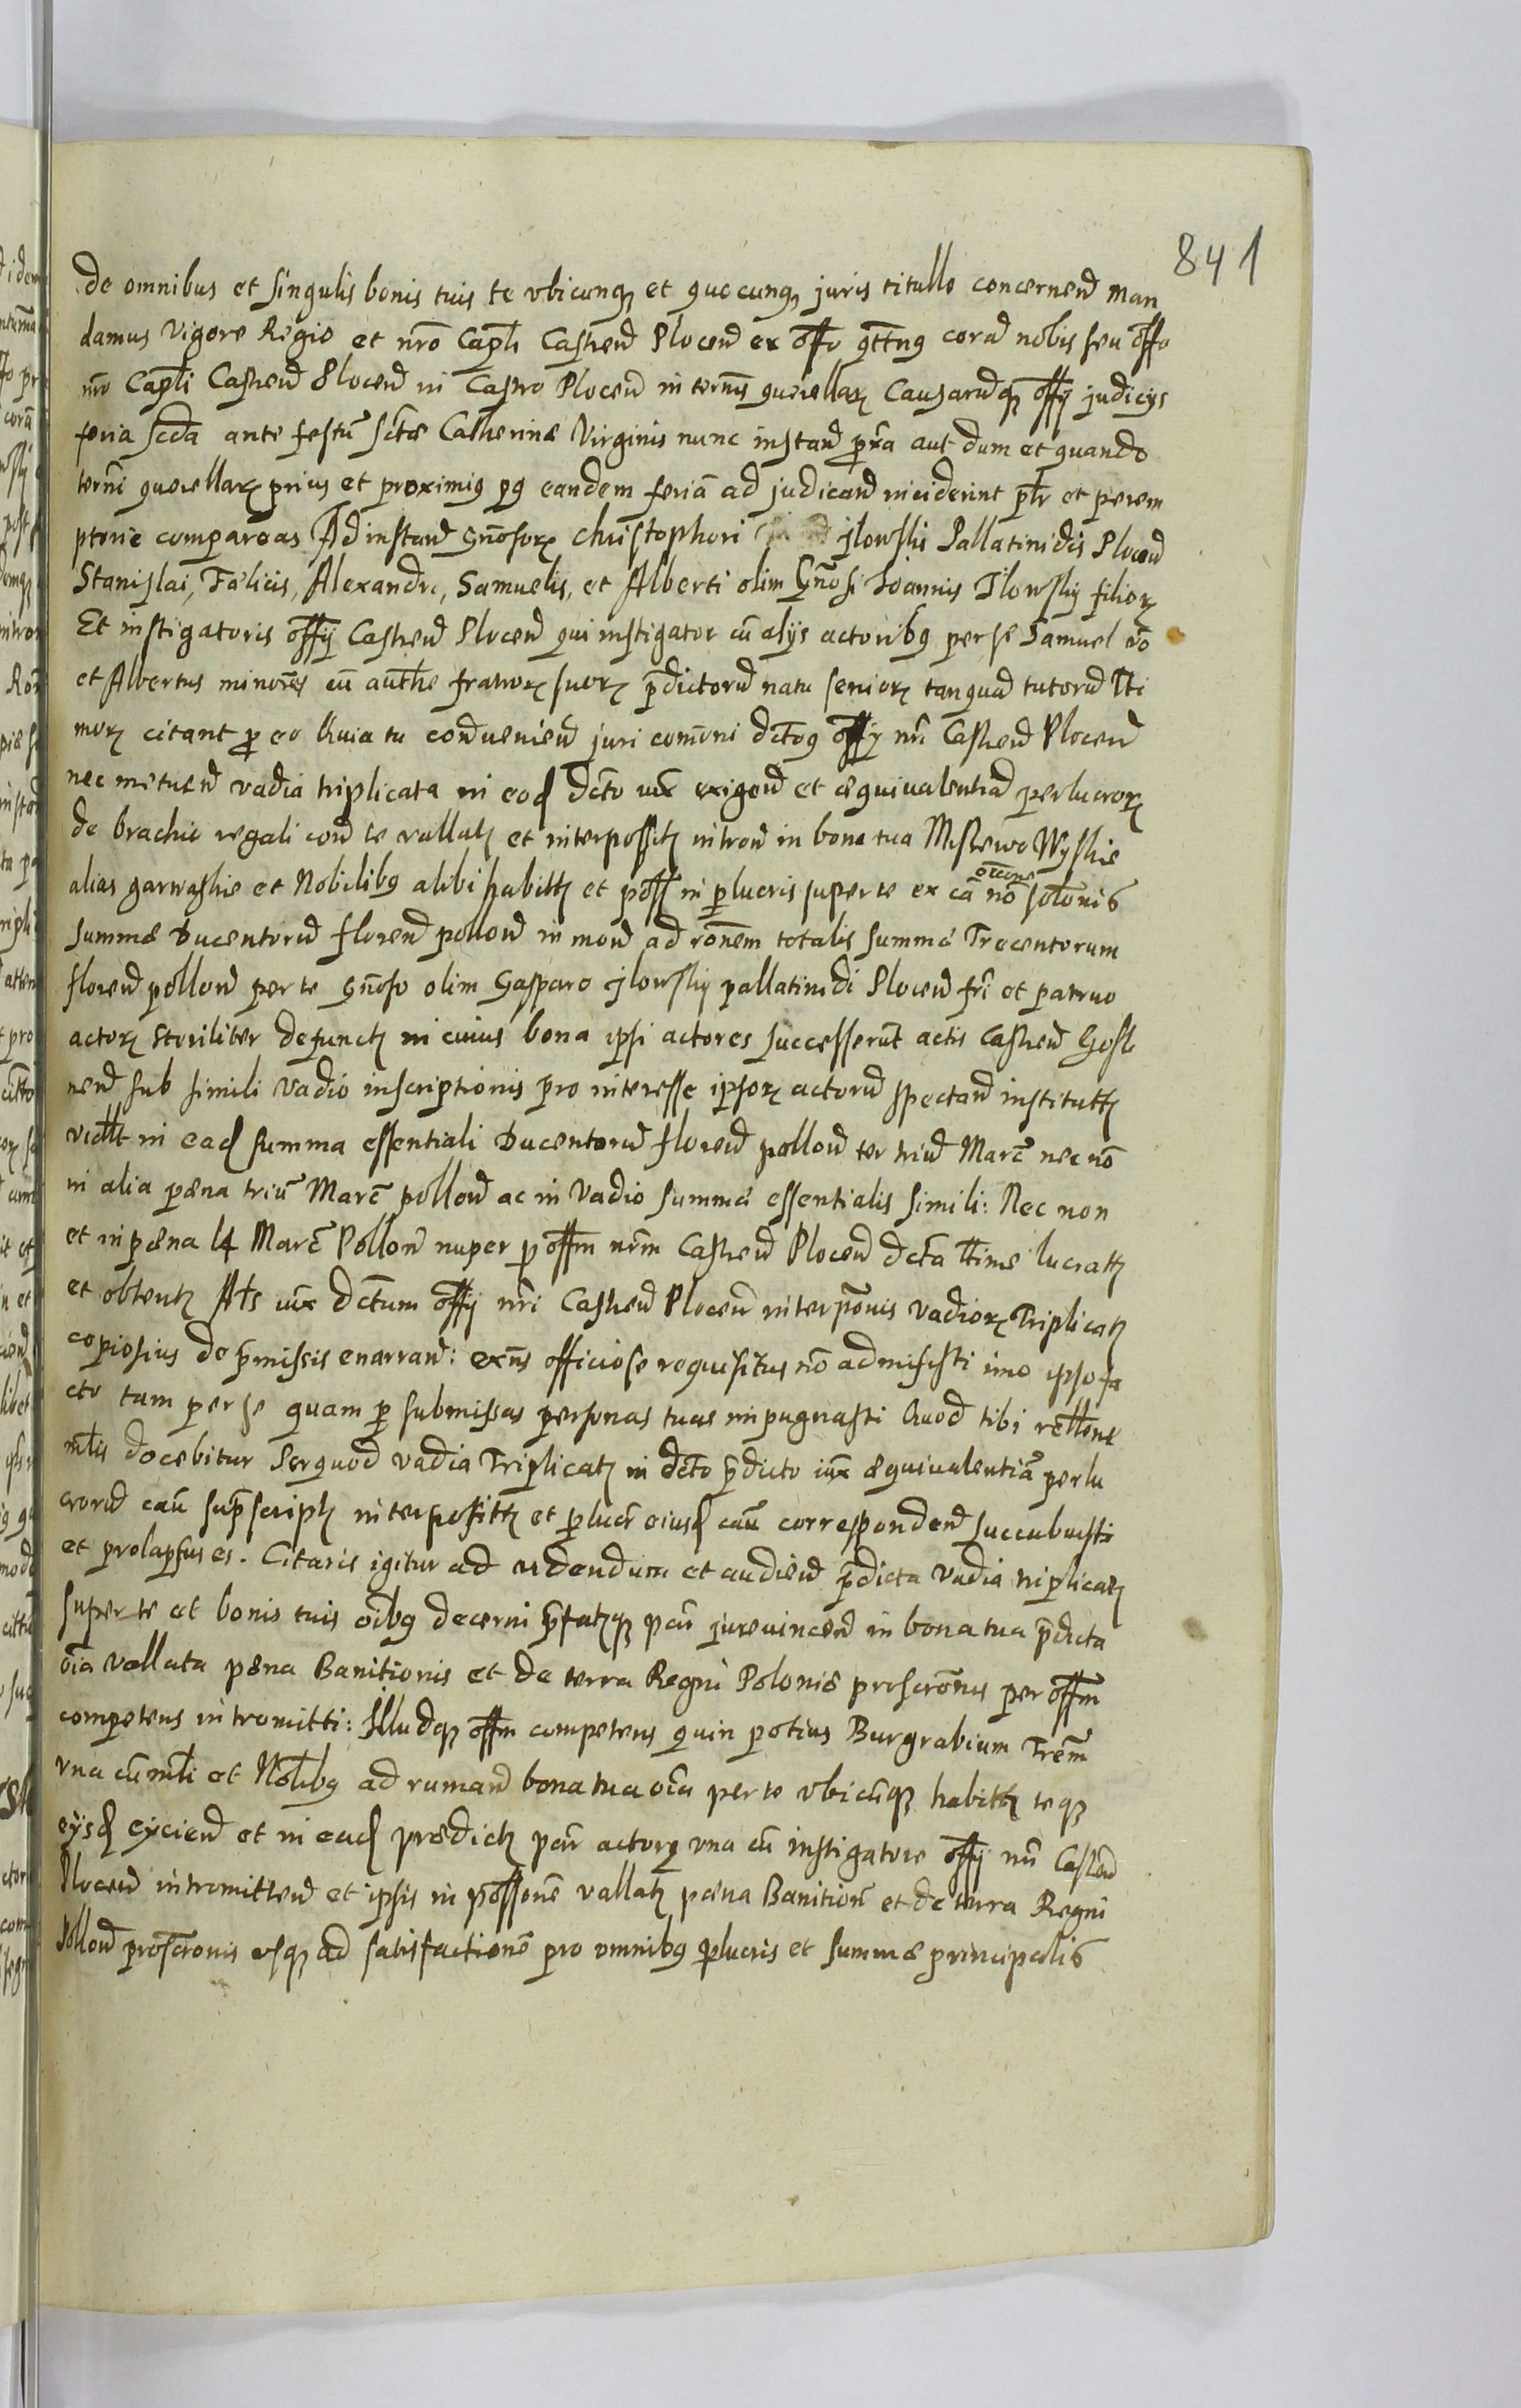 841
de omnibus et singulis bonis tuis te vbicunqȝ et quocunqȝ juris titullo concernen̄ man
damus Vigore Regio et nr̄o Cap̄li Castren̄ Plocen̄ ex offo cora̅ nobis seu offo
nr̄o Cap̄li Castren̄ Plocen̄ in Castro Plocen̄ in term̄s querellarꝫ Causarūqȝ offij judicijs
feria scda ante festū sctæ Catherinæ Virginis nunc instan̄ pr̄xa aut dum et quando
term̄i querellarꝫ prius et proximiꝰ pꝰ eandem feriā ad judican̄ inciderint pt̄r et perem
ptorie compareas Ad instan̄ Gn̄osorꝫ christophori jlowskis Pallatinidis Plocen̄
Stanislai, Fælicis, Alexandri, Samuelis, et Alberti olim Gn̄osi Joannis Ilowskij filiorꝫ
Et instigatoris offij Castren̄ Plocen̄ qui instigator cū alijs actoribꝰ per se Samuel v̄o
et Albertus minores cū auth̄e fratrorꝫ suorꝫ p̄dictorū natu seniorꝫ tanquā tutorū lti
morꝫ citant ꝓ eo Quia tu conuenien̄ juri com̄uni dctoqꝫ offij nr̄i Castren̄ Plocen̄
nec metuen̄ vadia triplicata in eod dcto iux̄ exigen̄ et æquiualentiā perlucrorꝫ
de brachio regali con̄ te vallatꝫ et interpossitꝫ intron̄ in bona tua Mstewo Wyskie
alias garwaskie et Nobilibꝰ alibi habittꝫ et poss in ꝑlucris super te ex cā nō solonis
summæ Ducentorū floren̄ pollon̄ in mon̄ ad rōnem totalis summæ Trecentorum
floren̄ pollon̄ per te Gn̄oso olim Gasparo jlowskij pallatinidi Plocen̄ fr̄i et patruo
actorꝫ steriliter defunctꝫ in cuius bona ipsi actores successerūt actis Castren̄ Gosti
nen̄ sub simili Vadio inscriptionis pro interesse ipsorꝫ actorū spectan̄ institutꝫ
vidlt in ead summa essentiali Ducentorū floren̄ pollon̄ ter triū Marc̄ nec nō
in alia pæna triū Marc̄ pollon̄ ac in Vadio summæ essentialis simili: Nec non
et in pæna 14 Marc̄ Pollon̄ nuper ꝑ offm nr̄m Castren̄ Plocen̄ dcta ltime lucratꝫ
et obtentꝫ Ats iux̄ dctum offij nr̄i Castren̄ Plocen̄ interp̄onis vadiorꝫ Triplicatꝫ
copiosius de p̄missis enarran̄: exn̄s officiose requisitus nō admisisti imo ipso fa
cto tam per se quam ꝑ submissas personas tuas impugnasti Quod tibi
mlis docebitur Perquod vadia Triplicatꝫ in dcto p̄dicto iux̄ æquiualentiā perlu
crorū caū supscriptꝫ interpositꝫ et ꝑlucr̄ eiusd caū corresponden̄ succubuisti
et prolapsus es. Citaris igitur ad videndum et audien̄ p̄dicta vadia triplicatꝫ
super te et bonis tuis oibꝰ decerni p̄fatꝫqȝ par jureuincen̄ in bona tua p̄dicta
oīa vallata pæna Banitionis et de terra Regni Poloniæ proscr̄onis per offm
competens intromitti: Illudqȝ offm competens quin potius Burgrabium Trēm
vna cū mli et Nobibꝰ ad ruman̄ bona tua oīa per te vbicūqȝ habittꝫ teqȝ
eysd eyicien̄ et in ead prædictꝫ par actorꝫ vna cū instigatore offij nr̄i Castren̄
Plocen̄ intromitten̄ et ipsis in possonē vallatꝫ pæna Banition̄ et de terra Regni
Pollon̄ proscr̄onis vsqȝ ad satisfactionē pro omnibꝰ ꝑlucris et summæ principalis